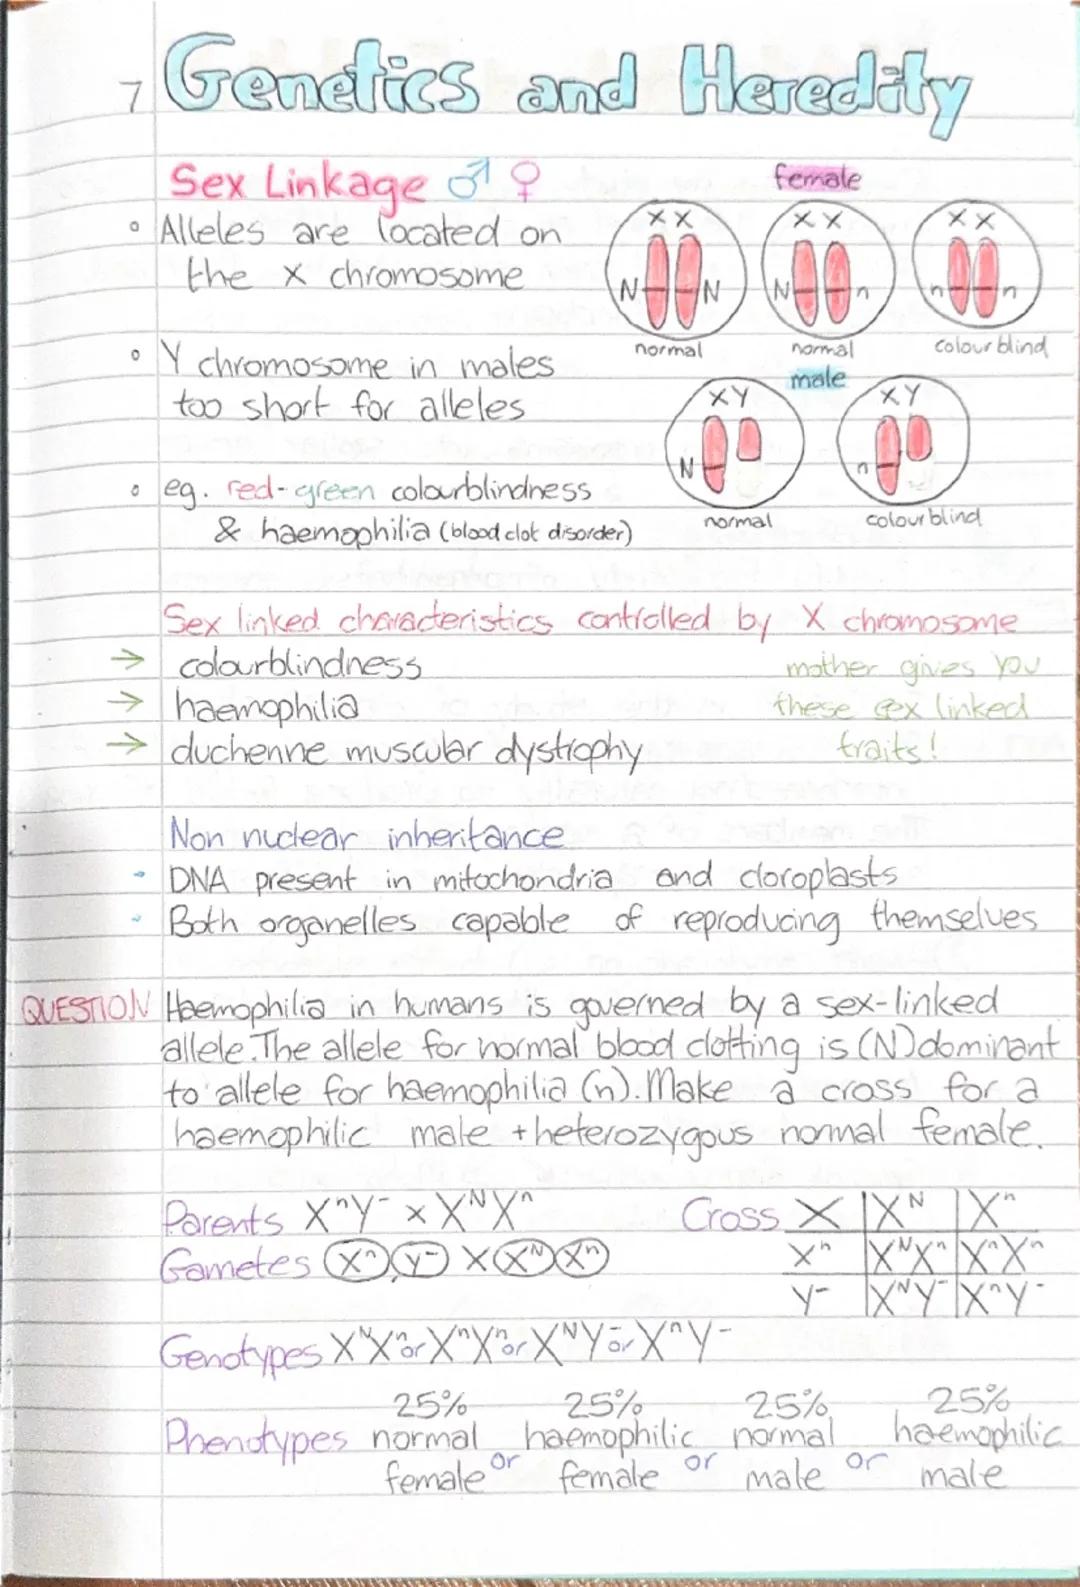 7 Genetics and Heredity
Sex Linkage ♂ ♀
° Alleles are located on
the X chromosome
° Y chromosome in males
too short for alleles
° eg. red-green colourblindness
& haemophilia (blood clot disorder)
female
XX XX XX
N N N n n n
normal normal colourblind
male
XY XY
N n
normal colourblind
Sex linked characteristics controlled by X chromosome
→ colourblindness
→ haemophilia
→ duchenne muscular dystrophy
mother gives you
these sex linked
traits!
Non nuclear inheritance
- DNA present in mitochondria and cloroplasts
- Both organelles capable of reproducing themselves
QUESTION Haemophilia in humans is governed by a sex-linked
allele. The allele for normal blood clotting is (N) dominant
to allele for haemophilia (n). Make a cross for a
haemophilic male + heterozygous normal female.
Parents XⁿY⁻ × XᴺXⁿ
Gametes Xⁿ Y⁻ × Xᴺ Xⁿ
Cross X Xᴺ Xⁿ
Xⁿ XᴺXⁿ XⁿXⁿ
Y⁻ XᴺY⁻ XⁿY⁻
Genotypes XᴺXⁿ or XⁿXⁿ or XᴺY⁻ or XⁿY⁻
25% 25% 25% 25%
Phenotypes normal haemophilic normal haemophilic
female or female or male or male